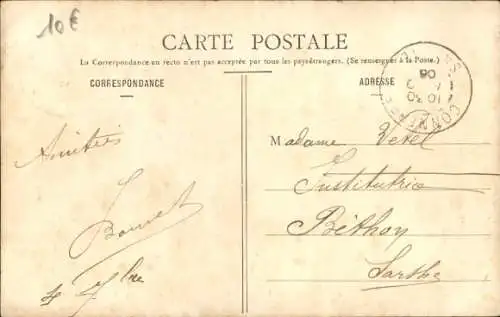 10€
CARTE POSTALE
La Correspondance au recto n'est pas acceptée par tous les pays étrangers. (Se renseigner à la Poste)
CORRESPONDANCE
ADRESSE
10 30
06
Amitiés
4 7bre
Madame Vetel
Institutrice
Béthon
Sarthe